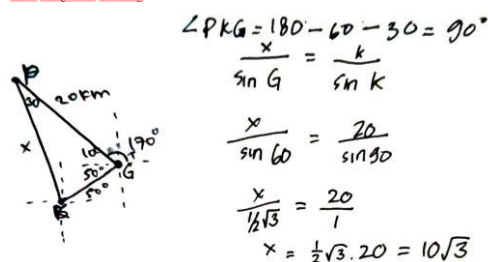 ∠PKG = 180 - 60 - 30 = 90°
x/sin G = k/sin K
x/sin 60 = 20/sin 90
x/½√3 = 20/1
x = ½√3 . 20 = 10√3
P
30
20 KM
x
10
170°
50°
G
50°